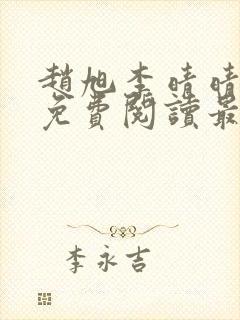 趙旭李晴晴
免費閱讀最
李永吉